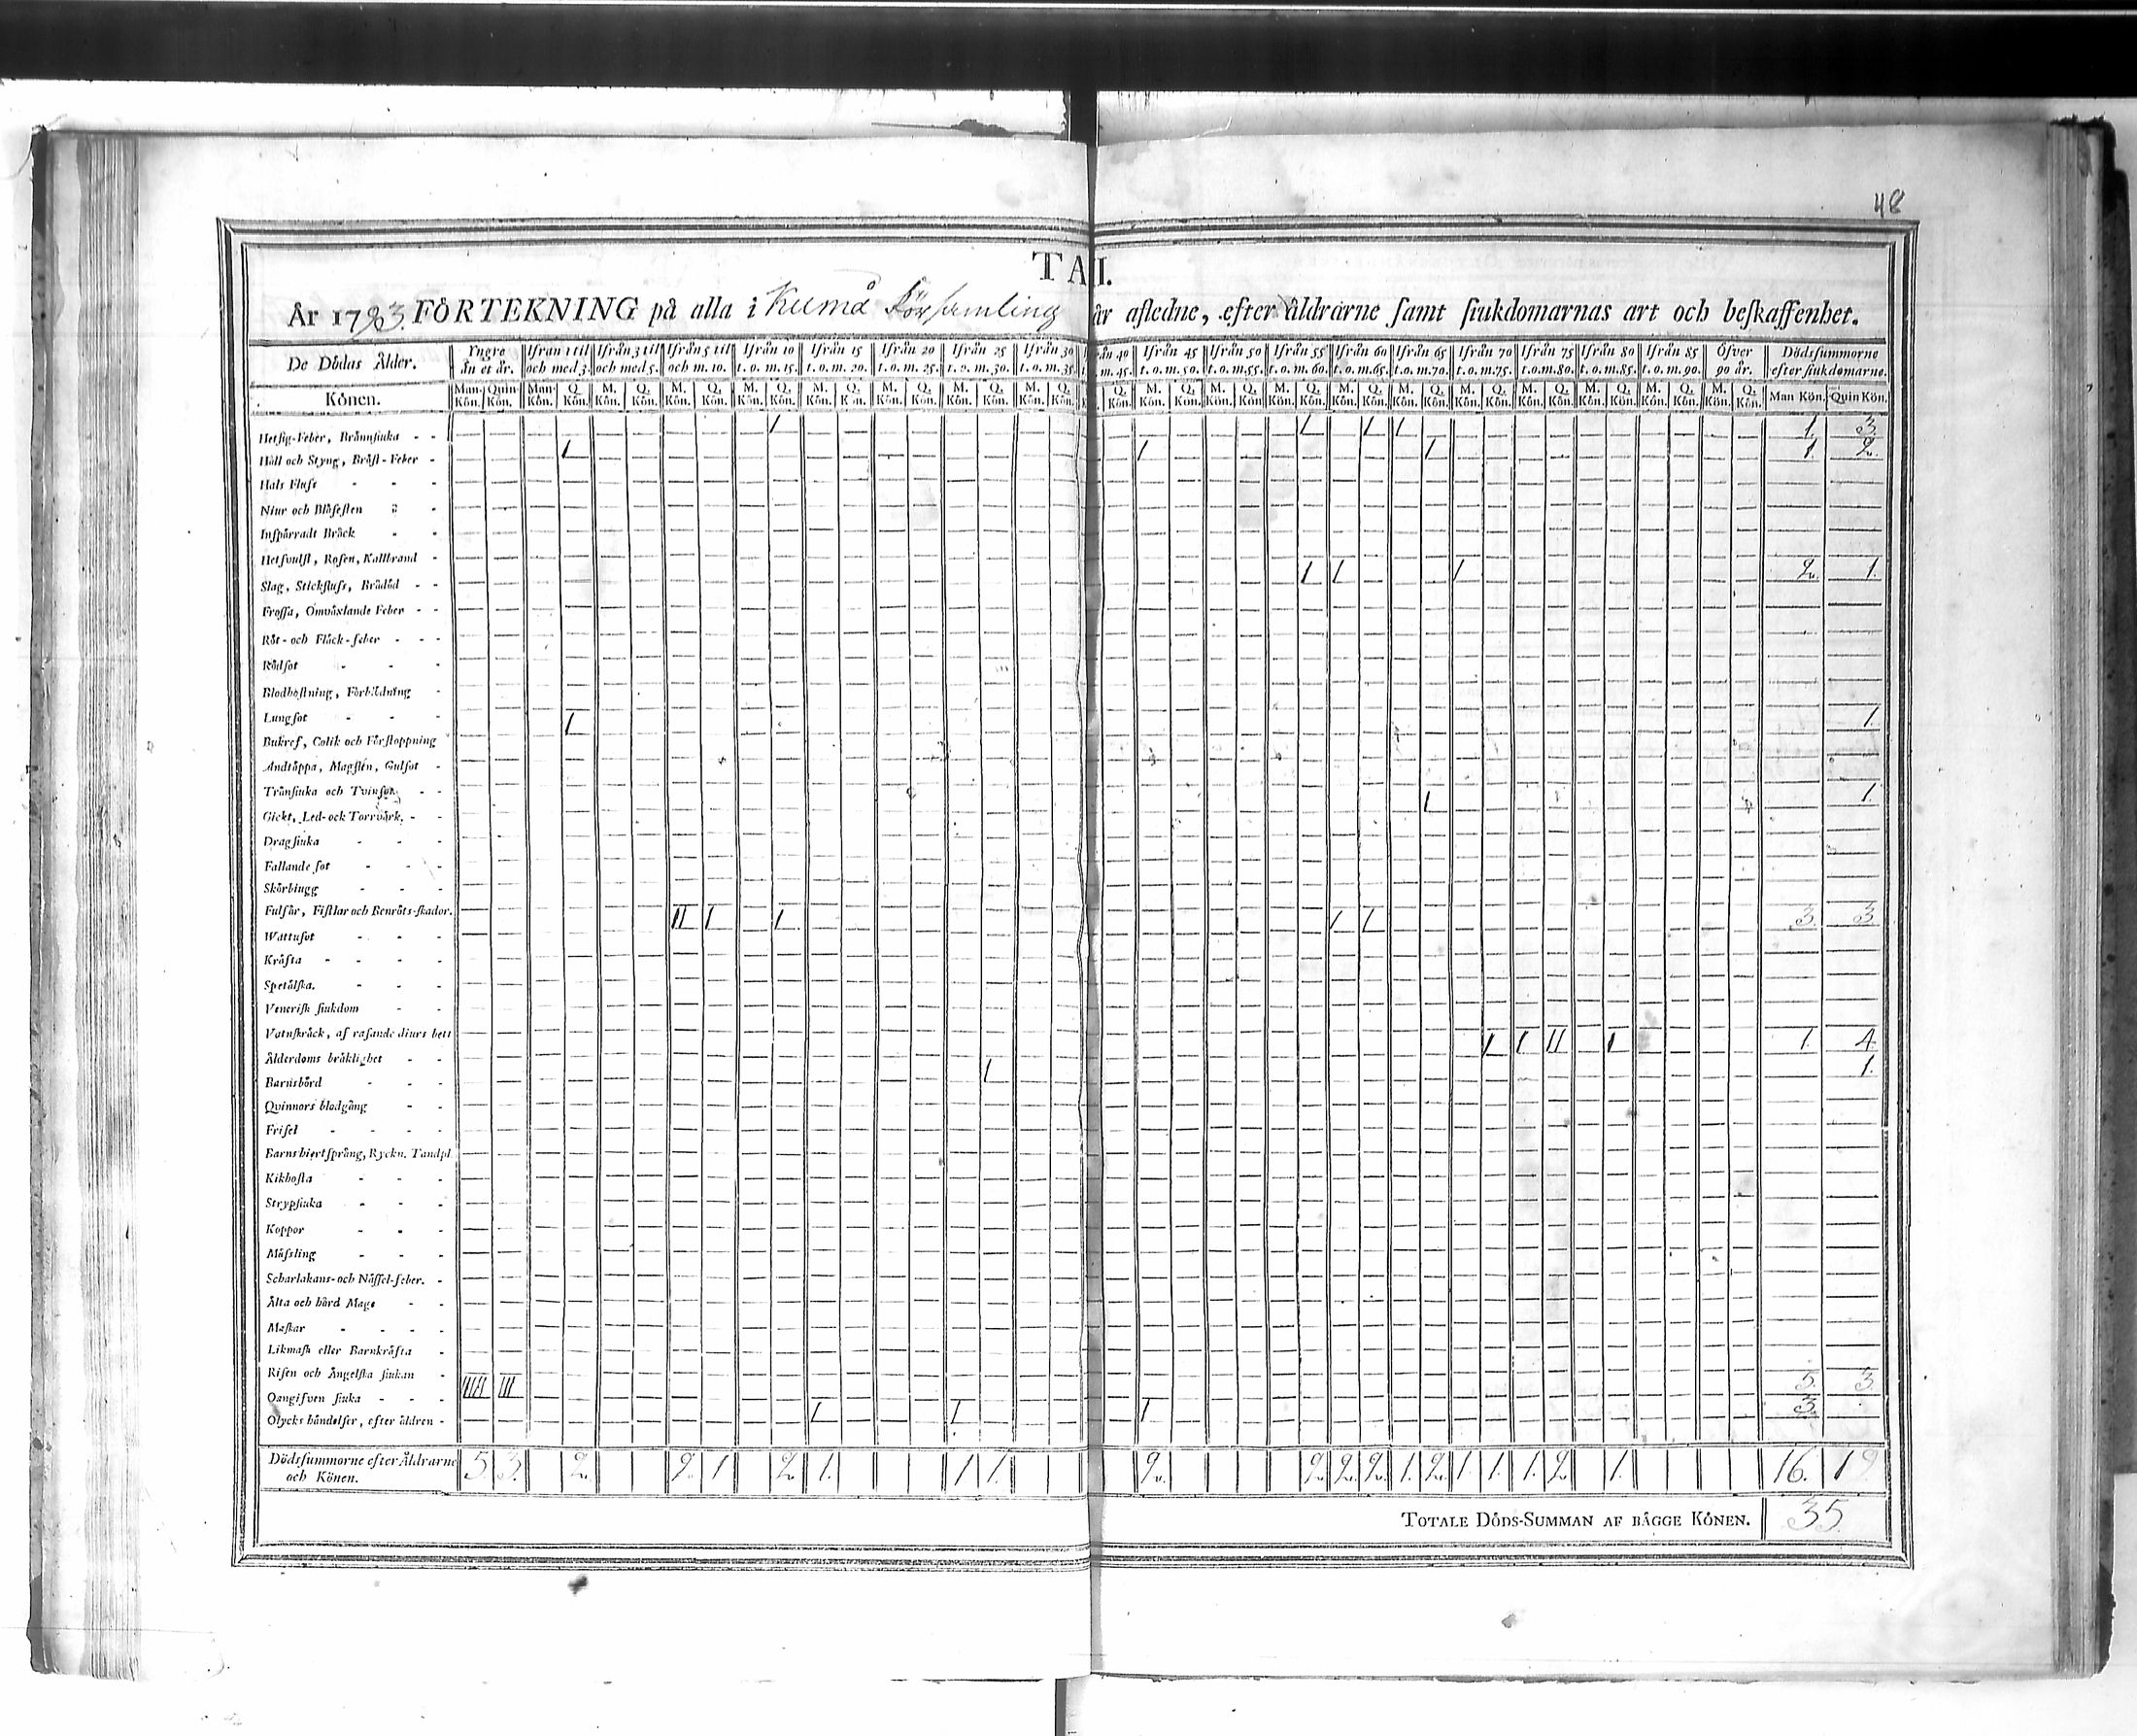 48
TA I.
År 1793. FÖRTEKNING på alla i Kumå Församling år afledne, efter åldrarne samt siukdomarnas art och beskaffenhet.
De Dödas Ålder. Yngre än et år. Ifrån 1 til och med 3. Ifrån 3 til och med 5. Ifrån 5 til och m. 10. Ifrån 10 t. o. m. 15. Ifrån 15 t. o. m. 20. Ifrån 20 t. o. m. 25. Ifrån 25 t. o. m. 30. Ifrån 30 t. o. m. 35. ån 40 m. 45. Ifrån 45 t. o. m. 50. Ifrån 50 t. o. m. 55. Ifrån 55 t. o. m. 60. Ifrån 60 t. o. m. 65. Ifrån 65 t. o. m. 70. Ifrån 70 t. o. m. 75. Ifrån 75 t. o. m. 80. Ifrån 80 t. o. m. 85. Ifrån 85 t. o. m. 90. Öfver 90 år. Dödssummorne efter siukdomarne.
Könen. Man Kön. Quin Kön. Man Kön. Q. Kön. M. Kön. Q. Kön. M. Kön. Q. Kön. M. Kön. Q. Kön. M. Kön. Q. Kön. M. Kön. Q. Kön. M. Kön. Q. Kön. M. Kön. Q. Kön. Q. Kön. M. Kön. Q. Kön. M. Kön. Q. Kön. M. Kön. Q. Kön. M. Kön. Q. Kön. M. Kön. Q. Kön. M. Kön. Q. Kön. M. Kön. Q. Kön. M. Kön. Q. Kön. M. Kön. Q. Kön. M. Kön. Q. Kön. Man Kön. Quin Kön.
Hetsig-Feber, Brännsiuka - - 1 1 1 1 1. 3.
Håll och Styng, Bröst-Feber - 1 1 1 1. 2.
Hals Fluss - - -
Niur och Blåsesten - -
Inspärradt Bråck - -
Hetsvulst, Rosen, Kallbrand -
Slag, Stickfluss, Brådöd - - 1 1 1 2. 1.
Frossa, Omväxlande Feber - -
Röt- och Fläck-feber - - -
Rödsot - - -
Blodhostning, Förblödning -
Lungsot - - - 1 1.
Bukref, Colik och Förstoppning
Andtäppa, Magsten, Gulsot -
Trånsiuka och Tvinsot - - 1 1.
Gickt, Led- ock Torrvärk. - -
Dragsiuka - - -
Fallande sot - - -
Skörbiugg - - -
Fulsår, Fistlar och Benröts-skador.
Wattusot - - - II I I I I 3. 3.
Kräfta - - - -
Spetälska. - - -
Venerisk siukdom - -
Vatnskräck, af rasande diurs bett
Ålderdoms bräklighet - - I I II I 1. 4.
Barnsbörd - - - I 1.
Qvinnors blodgång - -
Frisel - - - -
Barns hiertsprång, Ryckn. Tandpl
Kikhosta - - -
Strypsiuka - - -
Koppor - - -
Mässling - - -
Scharlakans- och Nässel-feber. -
Älta och hård Mage - -
Maskar - - - -
Likmask eller Barnkräfta -
Risen och Ängelska siukan -
Oangifven siuka - - - IIIII III 5. 3.
Olycks händelser, efter åldren - I I I 3.
Dödssummorne efter Åldrarne och Könen. 5. 3. 2. 2. 1 2. 1. 1 1. 2. 2. 2. 2. 1. 2. 1. 1. 1. 2. 1. 16. 19
TOTALE DÖDS-SUMMAN AF BÄGGE KÖNEN. 35.